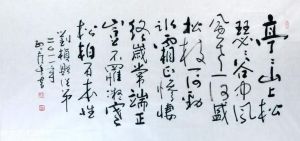 亭々山上松
瑟々谷中風
風聲一何盛
松枝一何勁
冰霜正慘悽
終歲常端正
豈不羅凝寒
松柏有本性
劉楨贈從弟
二〇一一年